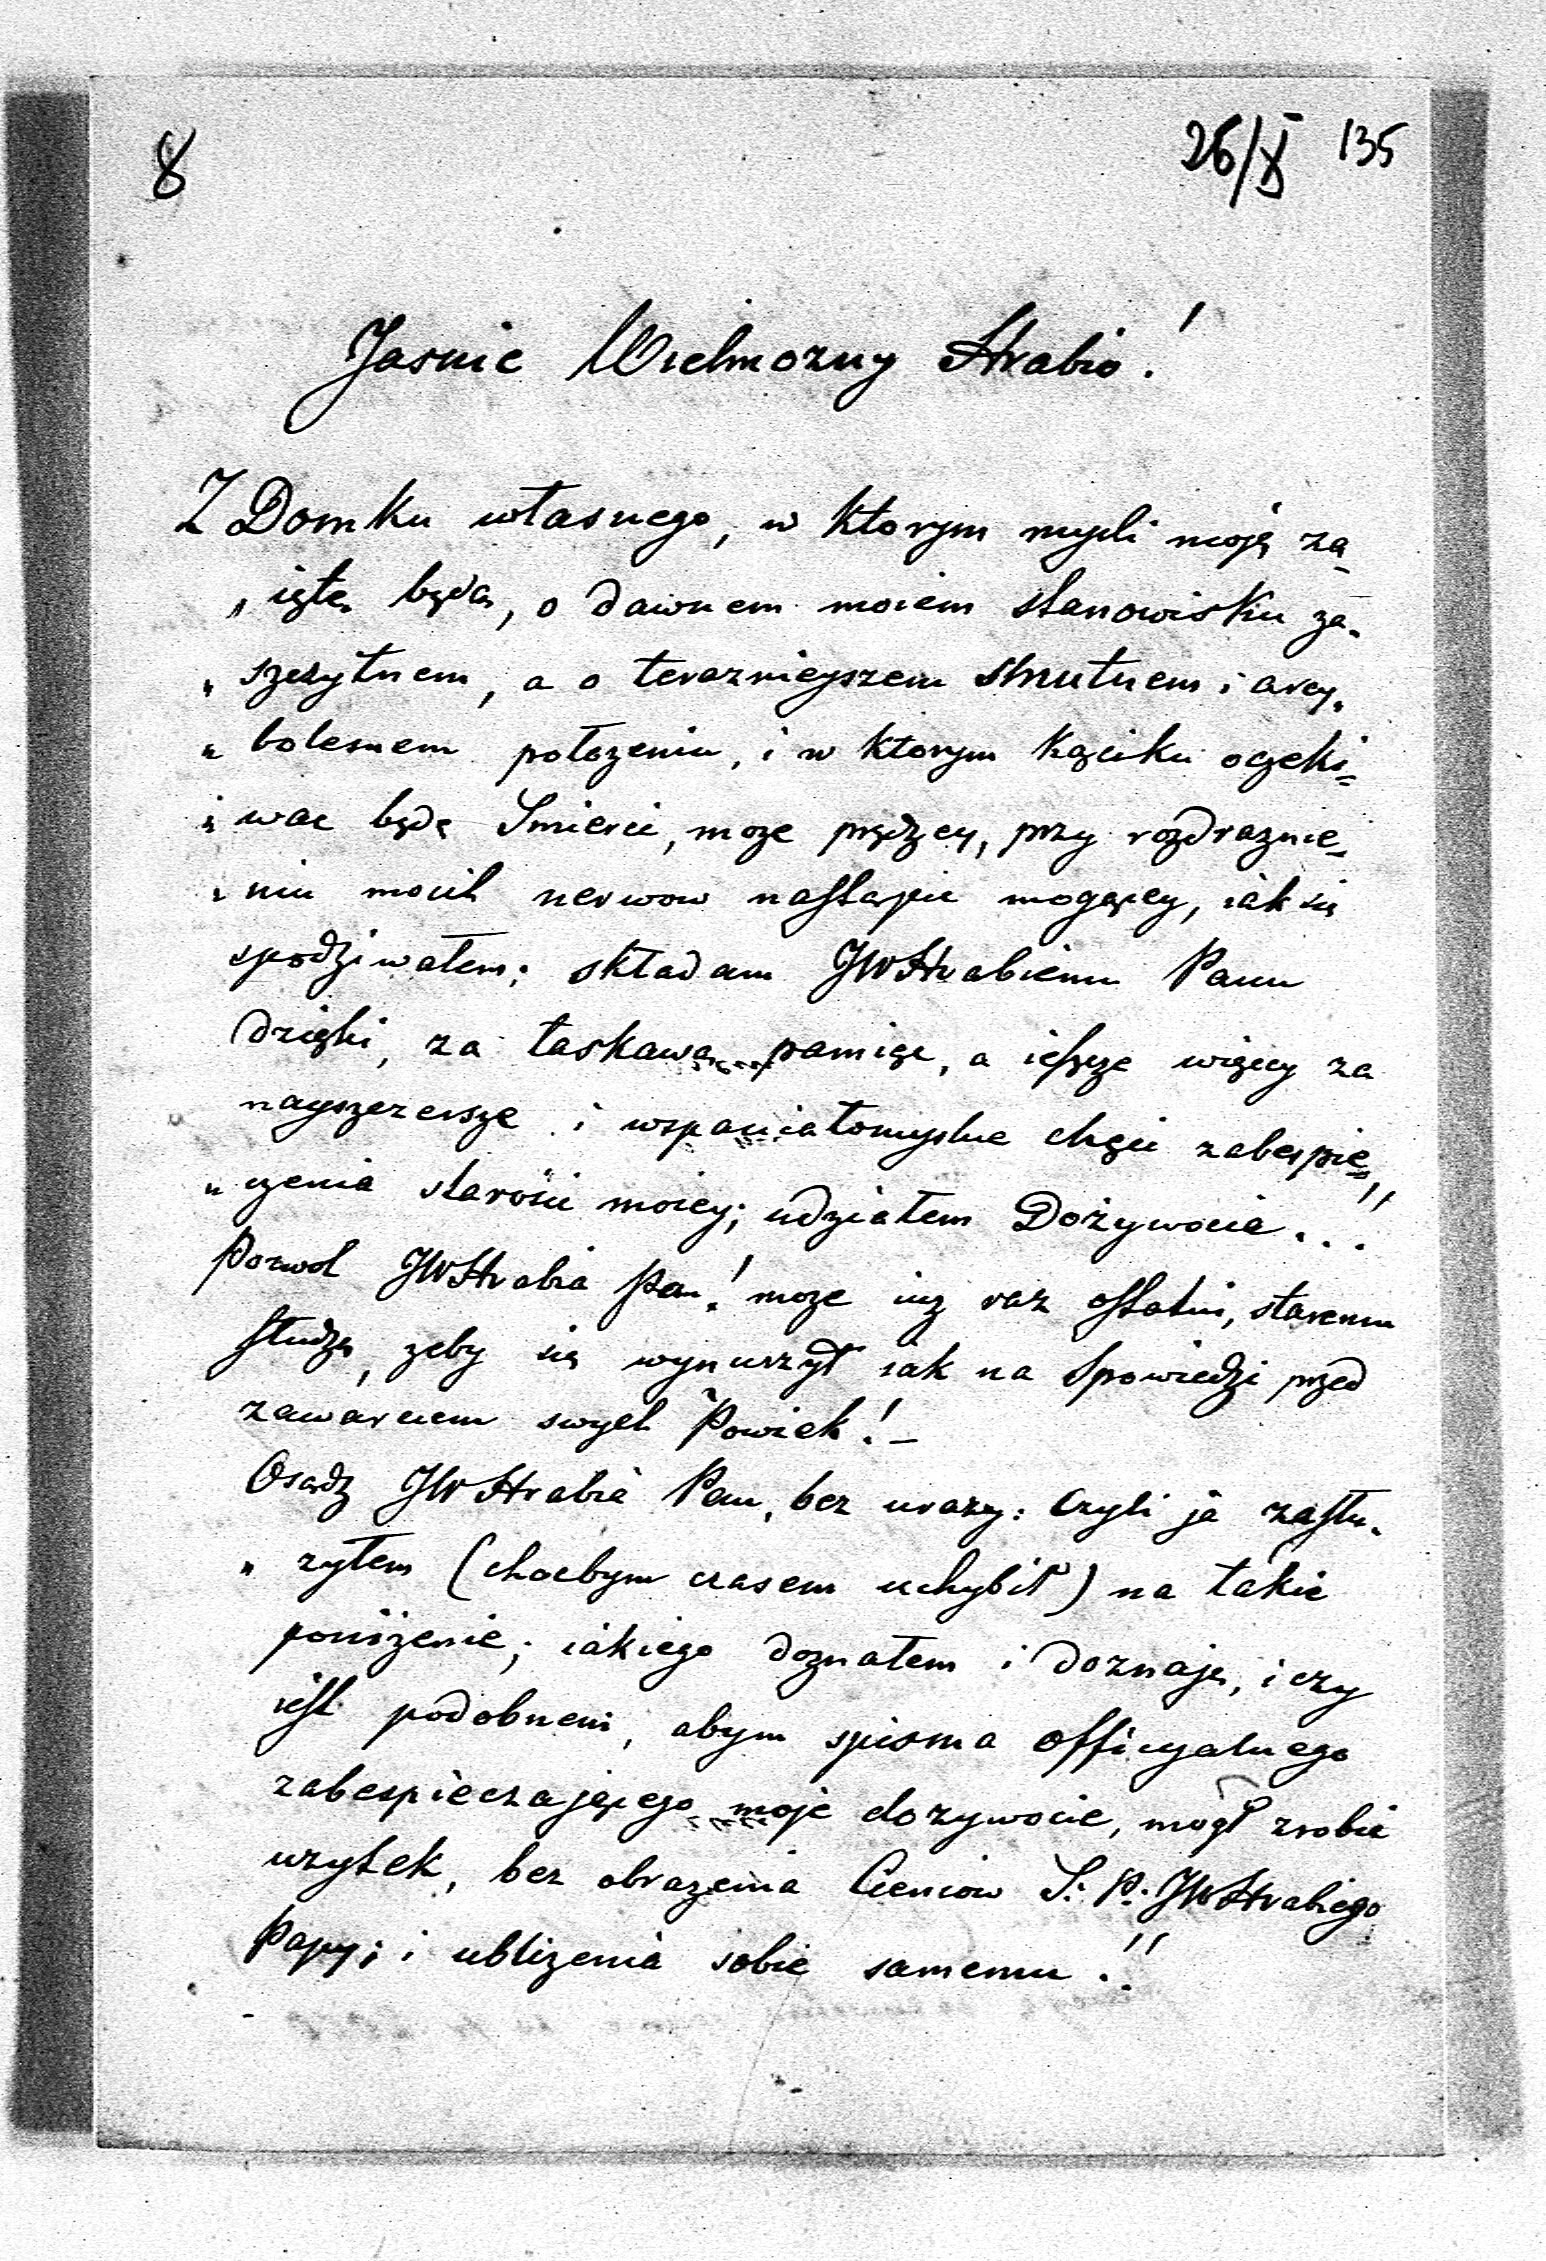 8
26/X 135
Jasnie Wielmozny Hrabio!
Z Domku własnego, w ktorym mysli moję za-
„ięte będą, o dawnem moiem stanowisku za-
„szczytnem, a o terazznieyszem smutnem i arcy-
„bolesnem położeniu, i w ktorym kąciku oczeki=
„wac będę Smierci, moze prędzey, przy rozdraznie-
„niu moich nerwow nastąpic mogącey, iak się
spodziwałem; składam JWHrabiemu Panu
dzięki, za łaskawą pamięc, a ieszcze więcy za
nayszczersze i wspaniałomyslne chęci zabespie-
„czenia starości moiey; udziałem Dożywocia...!!
Pozwol JWHrabia Pan! moze iuz raz ostatni, staremu
słudze, zeby się wynurzył iak na Spowiedzi przed
zawarciem swych Powiek! –
Osądz JWHrabia Pan, bez urazy: Czyli ja zasłu-
„zyłem (chocbym czasem uchybił) na takie
poniżenie; iakiego doznałem i doznaję, i czy
iest podobnem, abym spisma officyalnego
zabespieczającego moje dozywocie, mogł zrobic
uzytek, bez obrazenia Cieniow S: P: JWHrabiego
Papy; i ublizenia sobie samemu.!!